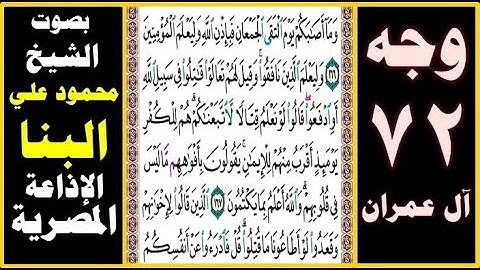 وجه
٧٢
آل عمران
وَمَآ أَصَٰبَكُمْ يَوْمَ ٱلْتَقَى ٱلْجَمْعَانِ فَبِإِذْنِ ٱللَّهِ وَلِيَعْلَمَ ٱلْمُؤْمِنِينَ
١٦٦ وَلِيَعْلَمَ ٱلَّذِينَ نَافَقُوا۟ وَقِيلَ لَهُمْ تَعَالَوْا۟ قَٰتِلُوا۟ فِى سَبِيلِ ٱللَّهِ
أَوِ ٱدْفَعُوا۟ قَالُوا۟ لَوْ نَعْلَمُ قِتَالًا لَّٱتَّبَعْنَٰكُمْ هُمْ لِلْكُفْرِ
يَوْمَئِذٍ أَقْرَبُ مِنْهُمْ لِلْإِيمَٰنِ يَقُولُونَ بِأَفْوَٰهِهِم مَّا لَيْسَ
فِى قُلُوبِهِمْ وَٱللَّهُ أَعْلَمُ بِمَا يَكْتُمُونَ ١٦٧ ٱلَّذِينَ قَالُوا۟ لِإِخْوَٰنِهِمْ
وَقَعَدُوا۟ لَوْ أَطَاعُونَا مَا قُتِلُوا۟ قُلْ فَٱدْرَءُوا۟ عَنْ أَنفُسِكُمُ
بصوت
الشيخ
محمود علي
البنا
الإذاعة
المصرية